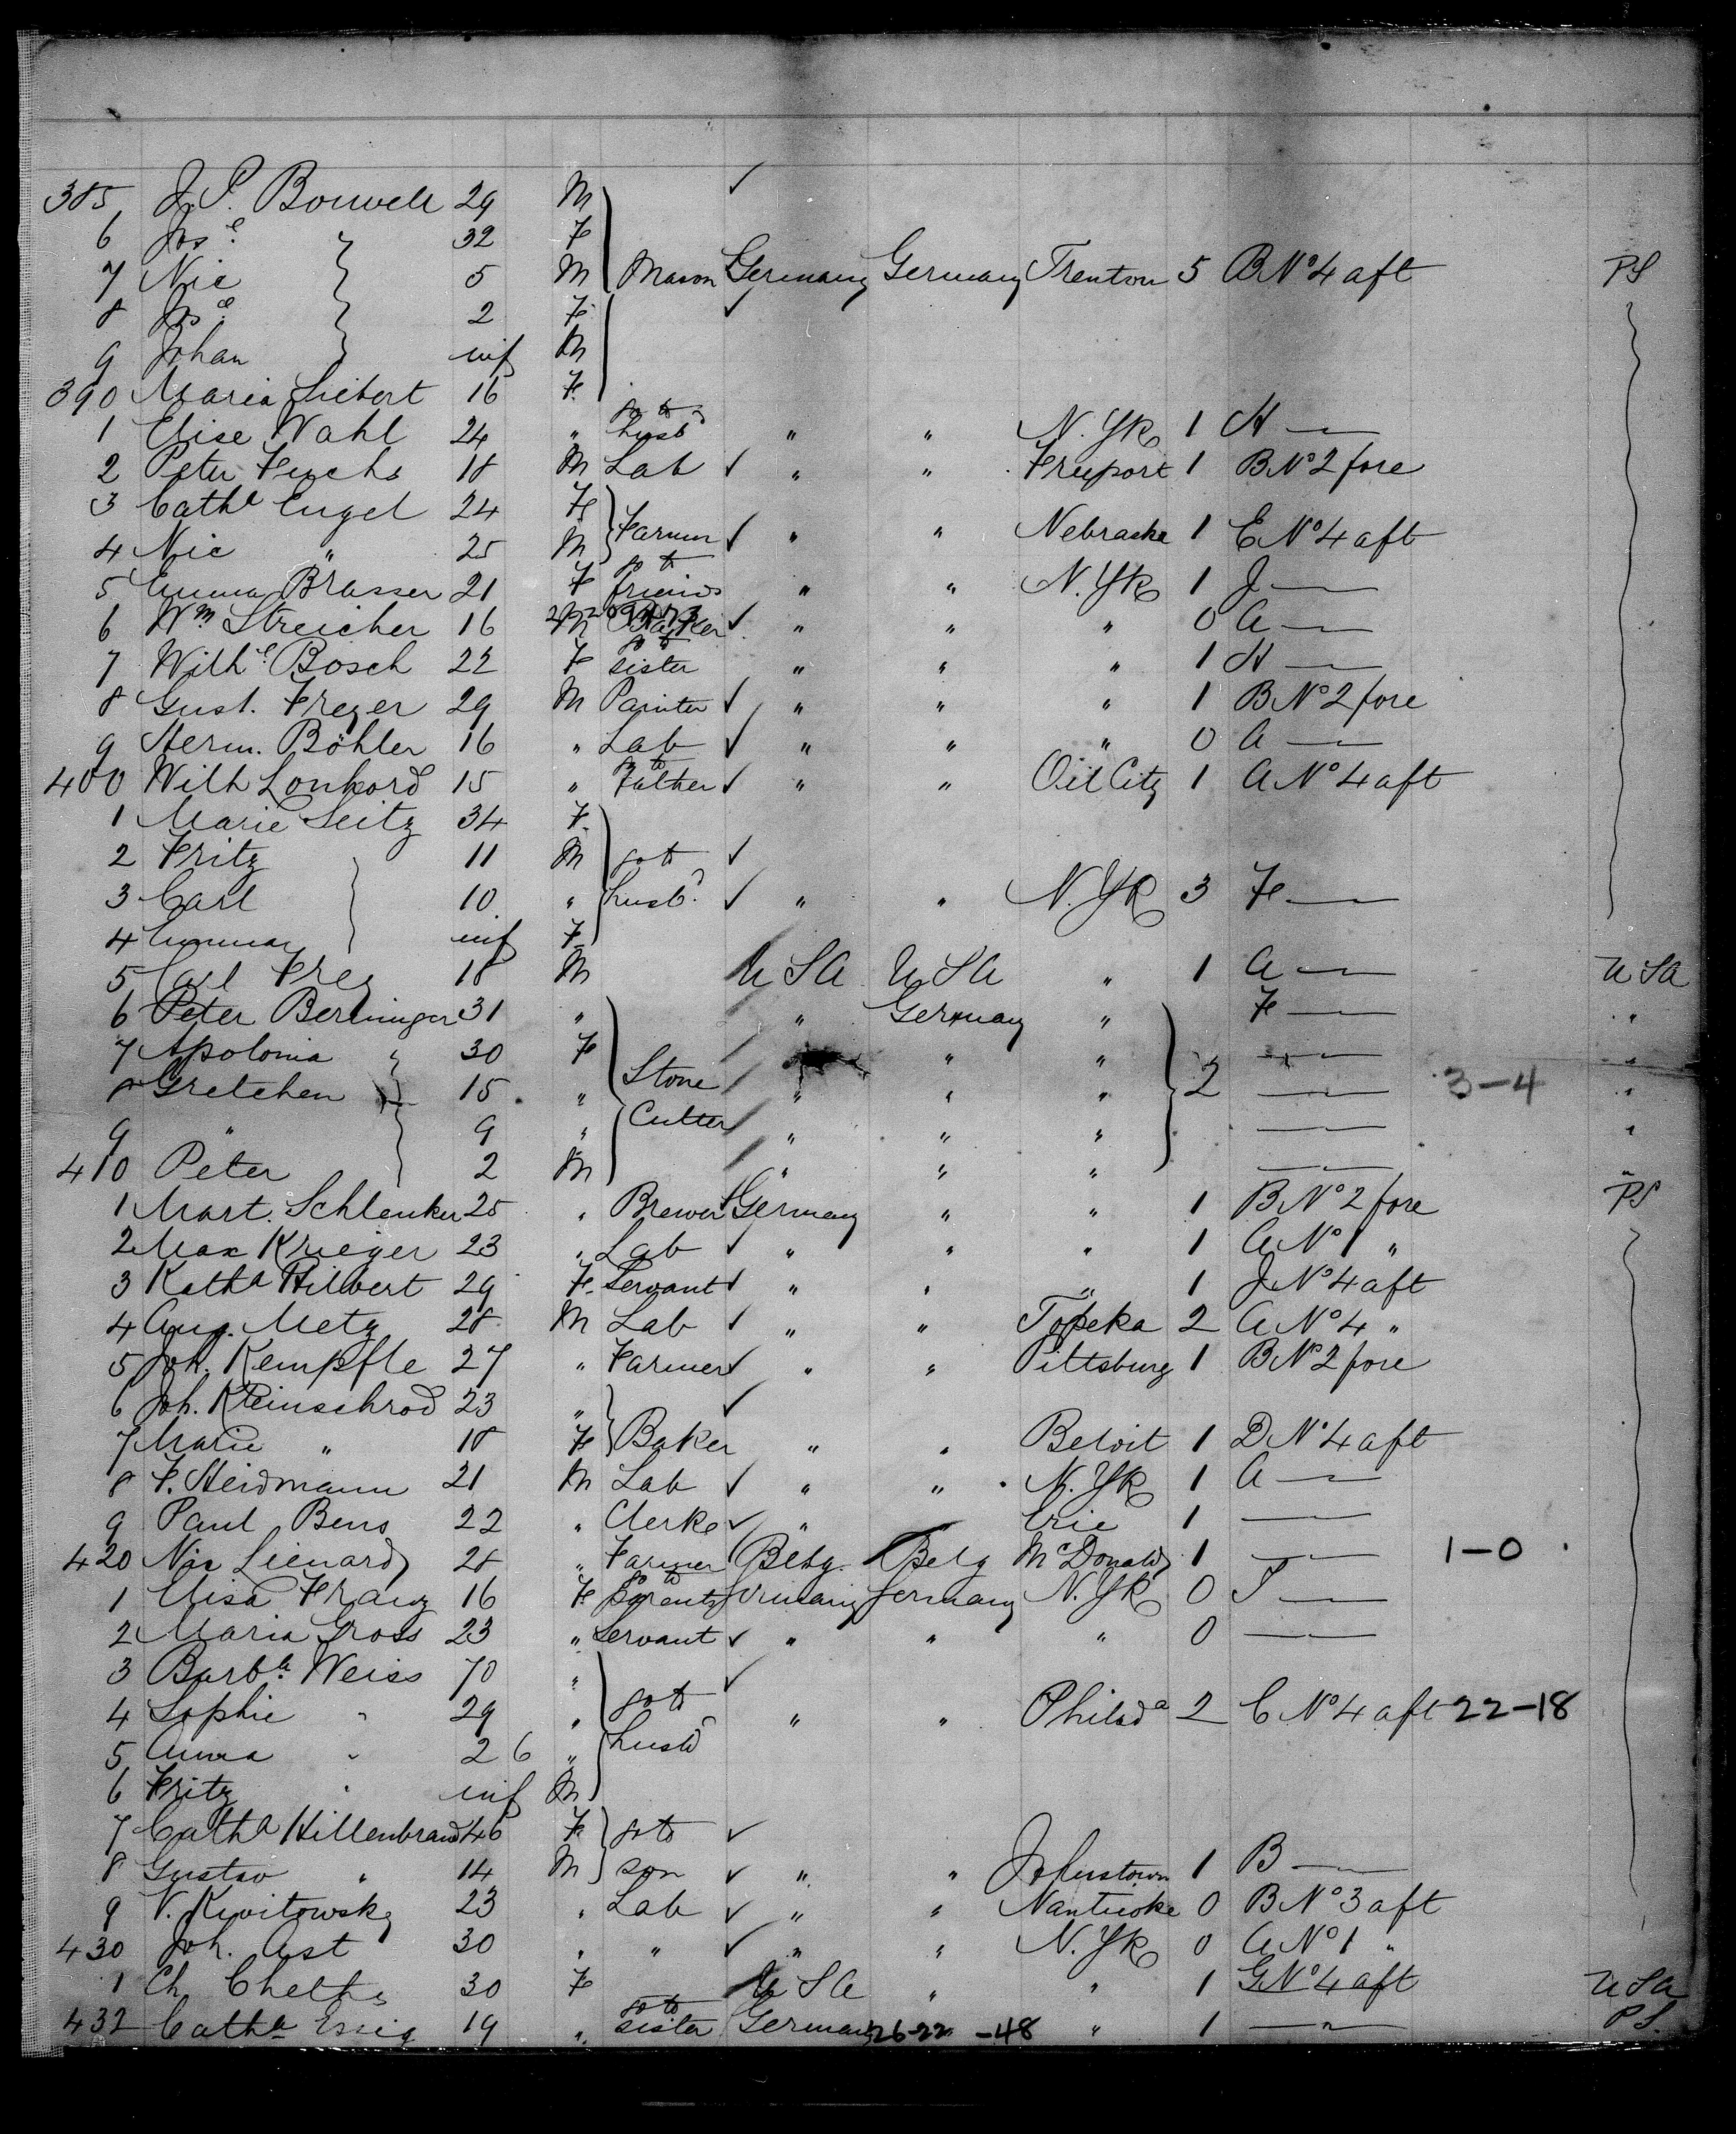 385 J. P. Bouvelt 29 M ✓
6 Josᵉ " 32 F
7 Nic 5 M Mason Germany Germany Trenton 5 B Nº 4 aft PS
8 Josᵉ 2 F ✓
9 Johan inf M
390 Maria Siebert 16 F
1 Elise Wahl 24 " go to husbᵈ " " N. Yk 1 H —"—
2 Peter Fuchs 18 M Lab ✓ " " Freeport 1 B Nº 2 fore
3 Cathᵃ Engel 24 F
4 Nic " 25 M Farmer ✓ " " Nebraska 1 E Nº 4 aft
5 Emma Brasser 21 F go to friends " " N. Yk 1 J —"—
6 Wᵐ Streicher 16 M Baker ✓ " " " 0 A —"—
7 Wilhᵉ Bosch 22 F go to sister " " " 1 H —"—
8 Gust. Freyer 29 M Painter ✓ " " " 1 B Nº 2 fore
9 Herm. Böhler 16 " Lab ✓ " " " 0 A —"—
400 Wilh Lonkord 15 " go to Father ✓ " " Oil City 1 A Nº 4 aft
1 Marie Seitz 34 F
2 Fritz 11 M go to ✓
3 Carl 10 " husbᵈ ✓ " " N. Yk 3 F —"—
4 Emma inf F
5 Carl Frey 18 M U S A U S A " 1 A —"— U S A
6 Peter Berninger 31 " " Germany " F —"— "
7 Apolonia " 30 F " " —"— "
8 Gretchen 15 " Stone " " " 2 —"— 3-4 "
9 " 9 " Cutter " " " —"— "
410 Peter 2 M " " " —"— "
1 Mart. Schlenker 25 " Brewer Germany " " 1 B Nº 2 fore PS
2 Max Krieger 23 " Lab ✓ " " " 1 A Nº 1 "
3 Kathᵃ Hilbert 29 F Servant ✓ " " " 1 J Nº 4 aft
4 Aug. Metz 28 M Lab ✓ " " Topeka 2 A Nº 4 "
5 Joh. Kempfle 27 " Farmer ✓ " " Pittsburg 1 B Nº 2 fore
6 Joh. Kleinschrod 23 " ✓
7 Marie " 18 F Baker " " Beloit 1 D Nº 4 aft
8 F. Heidmann 21 M Lab ✓ " " N. Yk 1 A —"—
9 Paul Bens 22 " Clerke ✓ " " Erie 1 —"—
420 Nic Lienard 28 " Farmer Belg. Belg McDonald 1 —"— 1-0
1 Elisa Franz 16 F go to parents Germany Germany N. Yk 0 —"—
2 Maria Gross 23 " Servant ✓ " " " 0 —"—
3 Barbᵃ Weiss 70 " ✓
4 Sophie " 29 " go to " " Philadᵃ 2 C Nº 4 aft 22-18
5 Anna " 26 " husbᵈ
6 Fritz " inf M
7 Cathᵃ Hillenbrand 46 F go to ✓
8 Gustav " 14 M son ✓ " " Johnstown 1 B —"—
9 V. Kwitowsky 23 " Lab ✓ " " Nanticoke 0 B Nº 3 aft
430 Joh. Ast 30 " " ✓ " " N. Yk 0 A Nº 1 "
1 Ch. 30 F U S A " " 1 G Nº 4 aft U S A
432 Cathᵃ Essig 19 " go to sister Germany 26-22 -48 " 1 —"— PS.